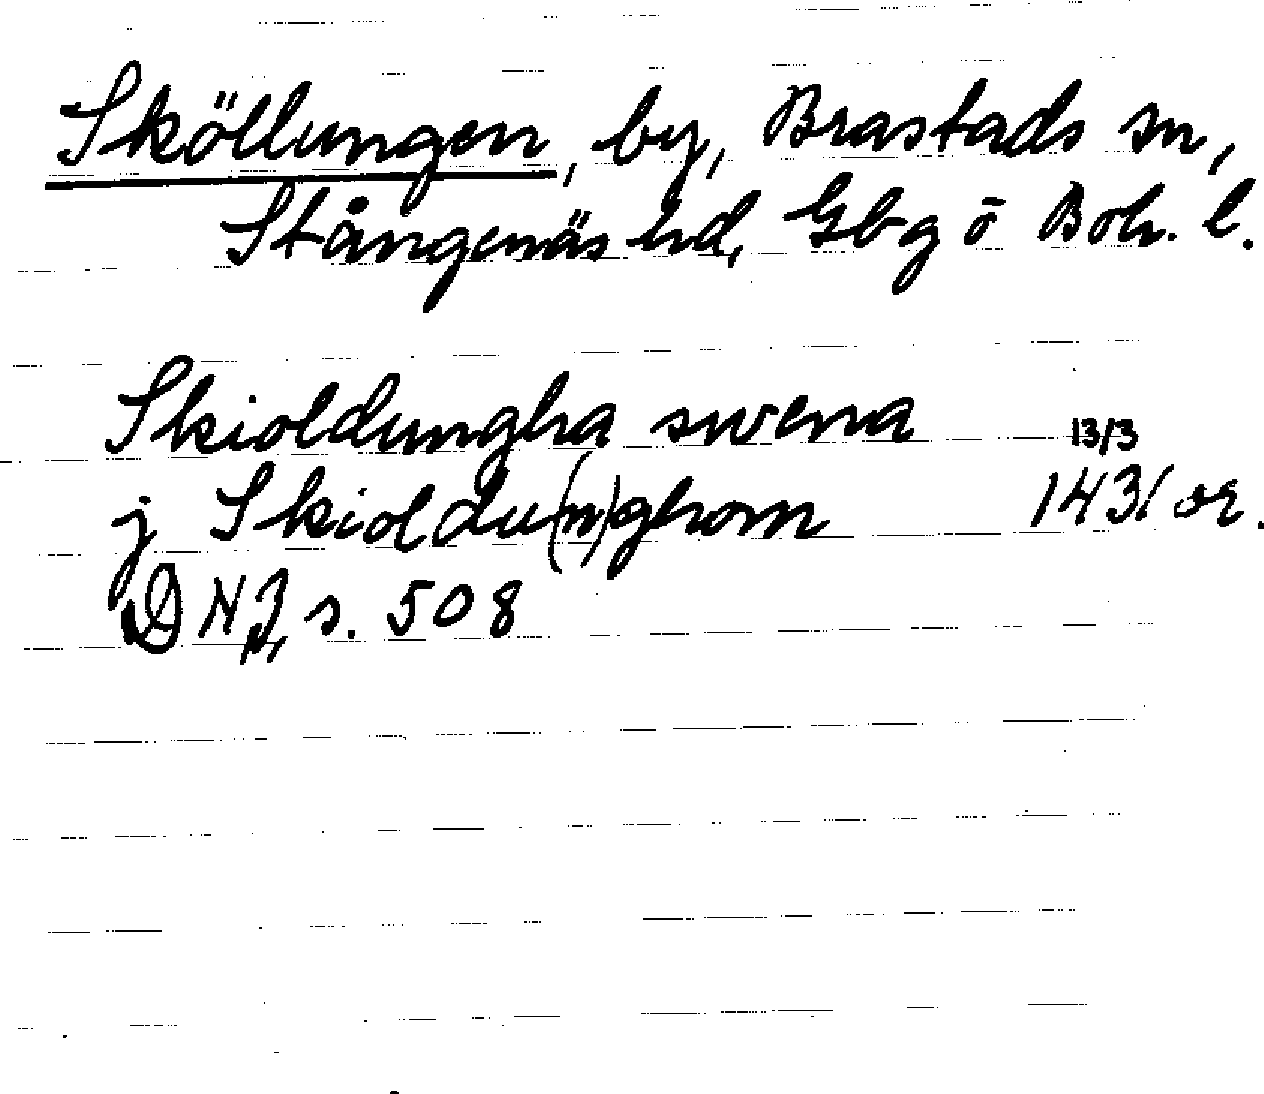 Sköllungen, by, Brastads sn,
Stångenäs hd, Gbg o Boh. l.
Skioldungha swena 13/3
j Skioldu(n)ghom 1431 or.
DNJ, s. 508